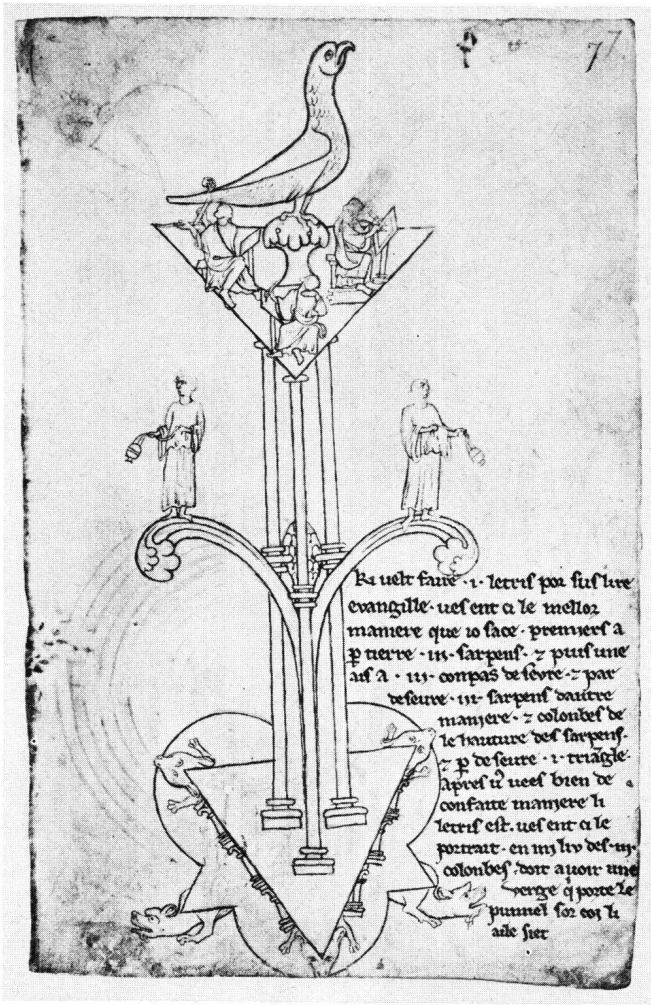 77
Ki velt faire · i · letris por sus lire
evangille · ves ent ci le mellor
maniere que io face · premiers a
p tierre · iii · sarpens · ⁊ puis une
ais a · iii · conpas deseure · ⁊ par
deseure · iii · sarpens dautre
maniere · ⁊ colonbes de
le hauture des sarpens ·
⁊ p deseure · i · triangle ·
apres vͦ vees bien de
confaite maniere li
letris est · ves ent ci le
portrait · en mi liu des · iii ·
colonbes · doit avoir une
verge q̇ porte le
pumiel sor coi li
aile siet